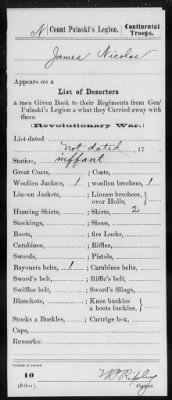 N | Count Pulaski's Legion. | Continental Troops.
James Nicolas
Appears on a
List of Deserters
& men Given Back to their Regiments from Gen'
Pulaski's Legion & what they Carried away with
them
(Revolutionary War.)
List dated
not dated, 17
Station, inffant
Great Coats, ; Coats,
Woollen Jackets, 1 ; woollen brechees, 1
Linnen Jackets, ; Linnen breeches, or over Holls,
Hunting Shirts, ; Shirts, 2
Stockings, ; Shoes,
Boots, ; fire Locks,
Carabines, ; Rifles,
Swords, ; Pistols,
Bayonets belts, 1 ; Carabines belts,
Sword's belt, ; Rifle's belt,
Swiffles belt, ; Sword's Slings,
Blanckets, ; Knee buckles & boots buckles,
Stocks & Buckles, ; Cartrige box,
Caps,
Remarks:
Number of record:
10
Copyist.